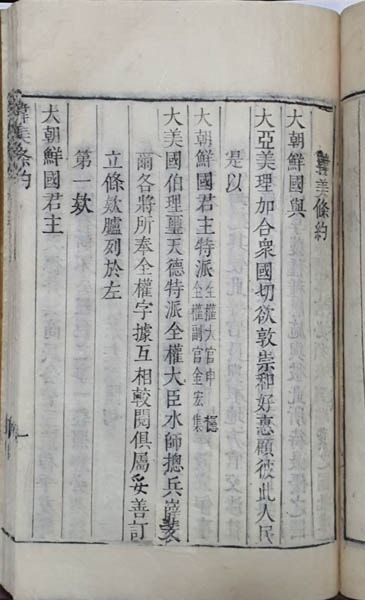 韓美條約
大朝鮮國與
大亞美理加合衆國切欲敦崇和好惠顧彼此人民
是以
大朝鮮國君主特派全權大官申櫶
全權副官金宏集
大美國伯理璽天德特派全權大臣水師摠兵薛斐
爾各將所奉全權字據互相較閱俱屬妥善訂
立條欵臚列於左
第一欵
大朝鮮國君主
韓美條約